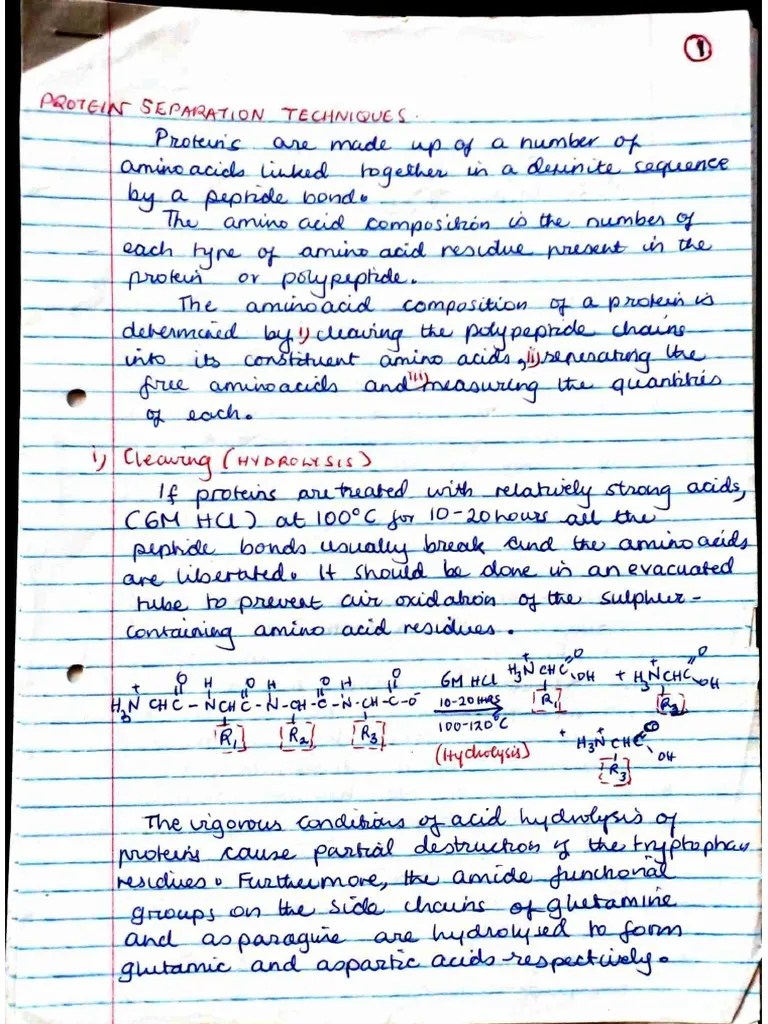 1
PROTEIN SEPARATION TECHNIQUES.
Proteins are made up of a number of
amino acids linked together in a definite sequence
by a peptide bond.
The amino acid composition is the number of
each type of amino acid residue present in the
protein or polypeptide.
The aminoacid composition of a protein is
determined by i) cleaving the polypeptide chains
into its constituent amino acids, ii) seperating the
free aminoacids and iii) measuring the quantities
of each.
i) Cleaving (HYDROLYSIS)
If proteins are treated with relatively strong acids,
(6M HCl) at 100°C for 10-20 hours all the
peptide bonds usually break and the amino acids
are liberated. It should be done in an evacuated
tube to prevent air oxidation of the sulphur-
containing amino acid residues.
H₃N⁺ CH C(=O) - N(H) CH C(=O) - N(H) - CH - C(=O) - N(H) - CH - C(=O) - O⁻
[R₁] [R₂] [R₃]
6M HCl
10-20HRS
100-120°C
(Hydrolysis)
H₃N⁺ CHC(=O)OH + H₃N⁺CHC(=O)OH
[R₁] [R₂]
+ H₃N⁺ CHC(=O)OH
[R₃]
The vigorous conditions of acid hydrolysis of
proteins cause partial destruction of the tryptophan
residues. Furthermore, the amide functional
groups on the side chains of glutamine
and asparagine are hydrolysed to form
glutamic and aspartic acids respectively.